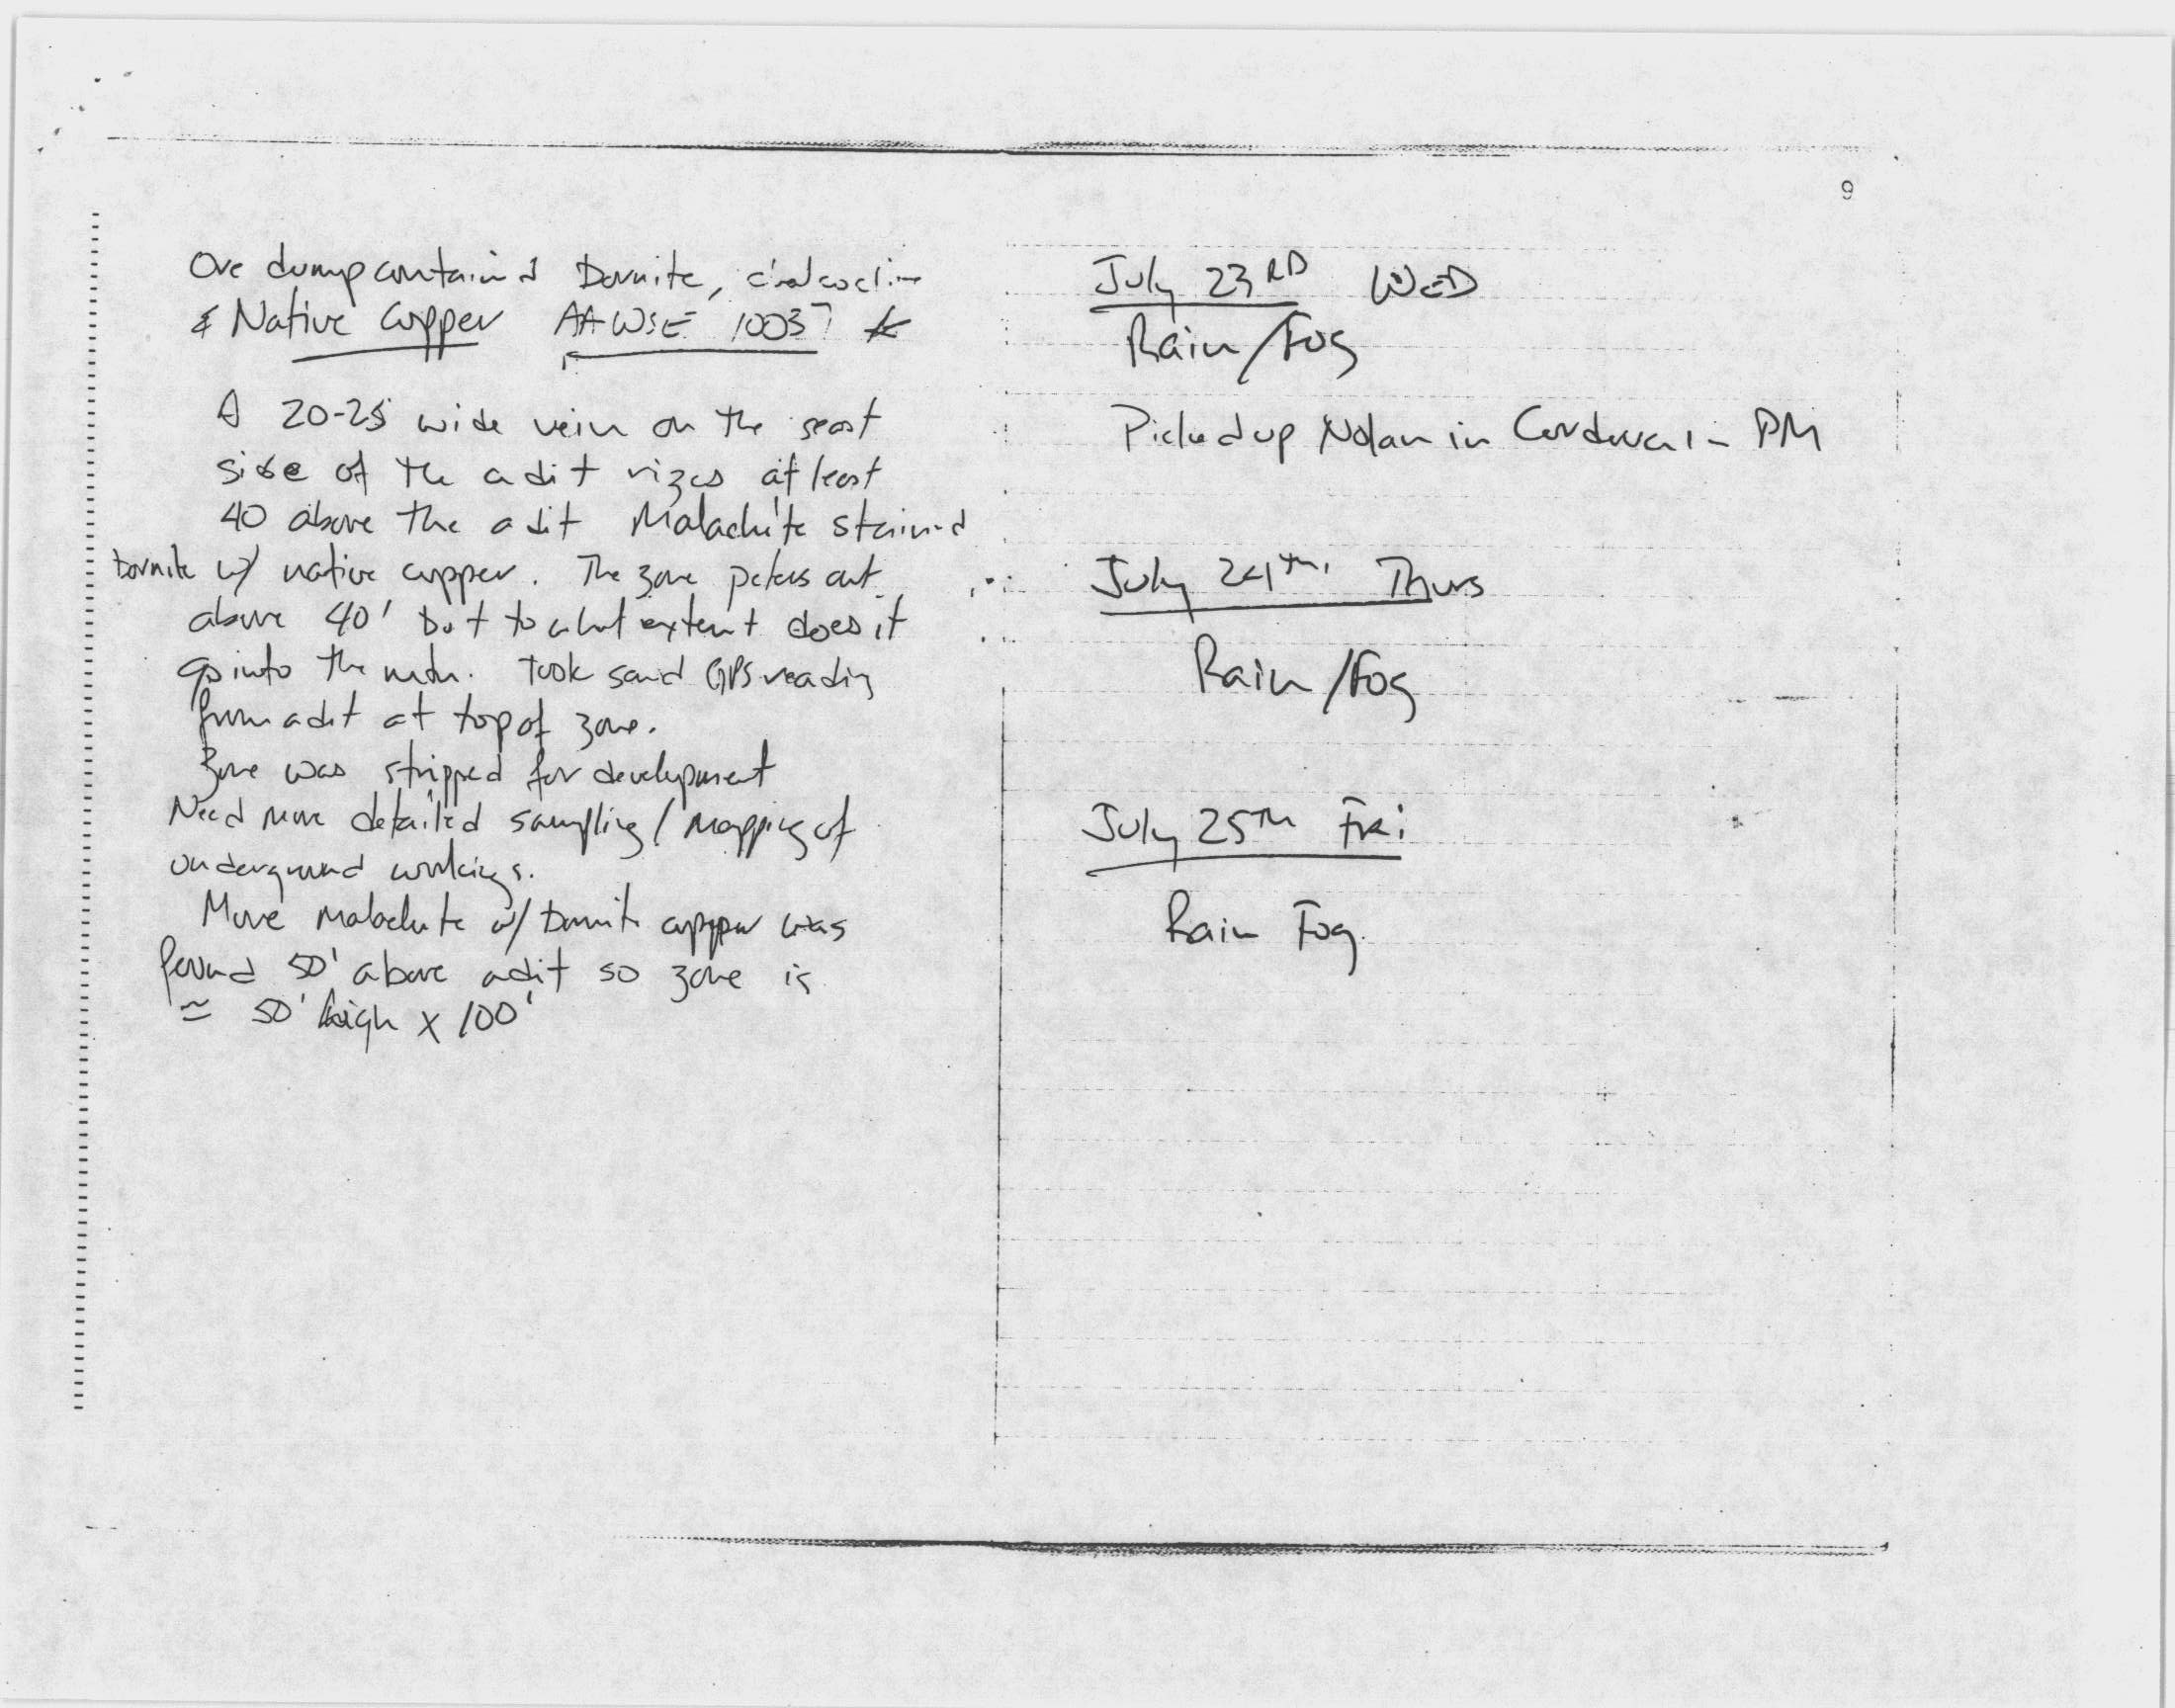 Ore dump contained Bornite, chalcocite
& Native Copper AAWSE 10037
A 20-25 wide vein on the
side of the adit rizes at least
40 above the adit Malachite stained
bornite w/ native copper. The zone peters out
above 40' but to what extent does it
go into the mtn. Took GPS reading
from adit at top of zone.
Zone was stripped for development
Need more detailed sampling / mapping of
underground workings.
More Malachite w/ Bornite copper was
found 50' above adit so zone is
≃ 50' high x 100'
9
July 23RD WED
Rain/Fog
Picked up Nolan in Cordova in PM
July 24th Thurs
Rain/Fog
July 25TH FRi
Rain Fog